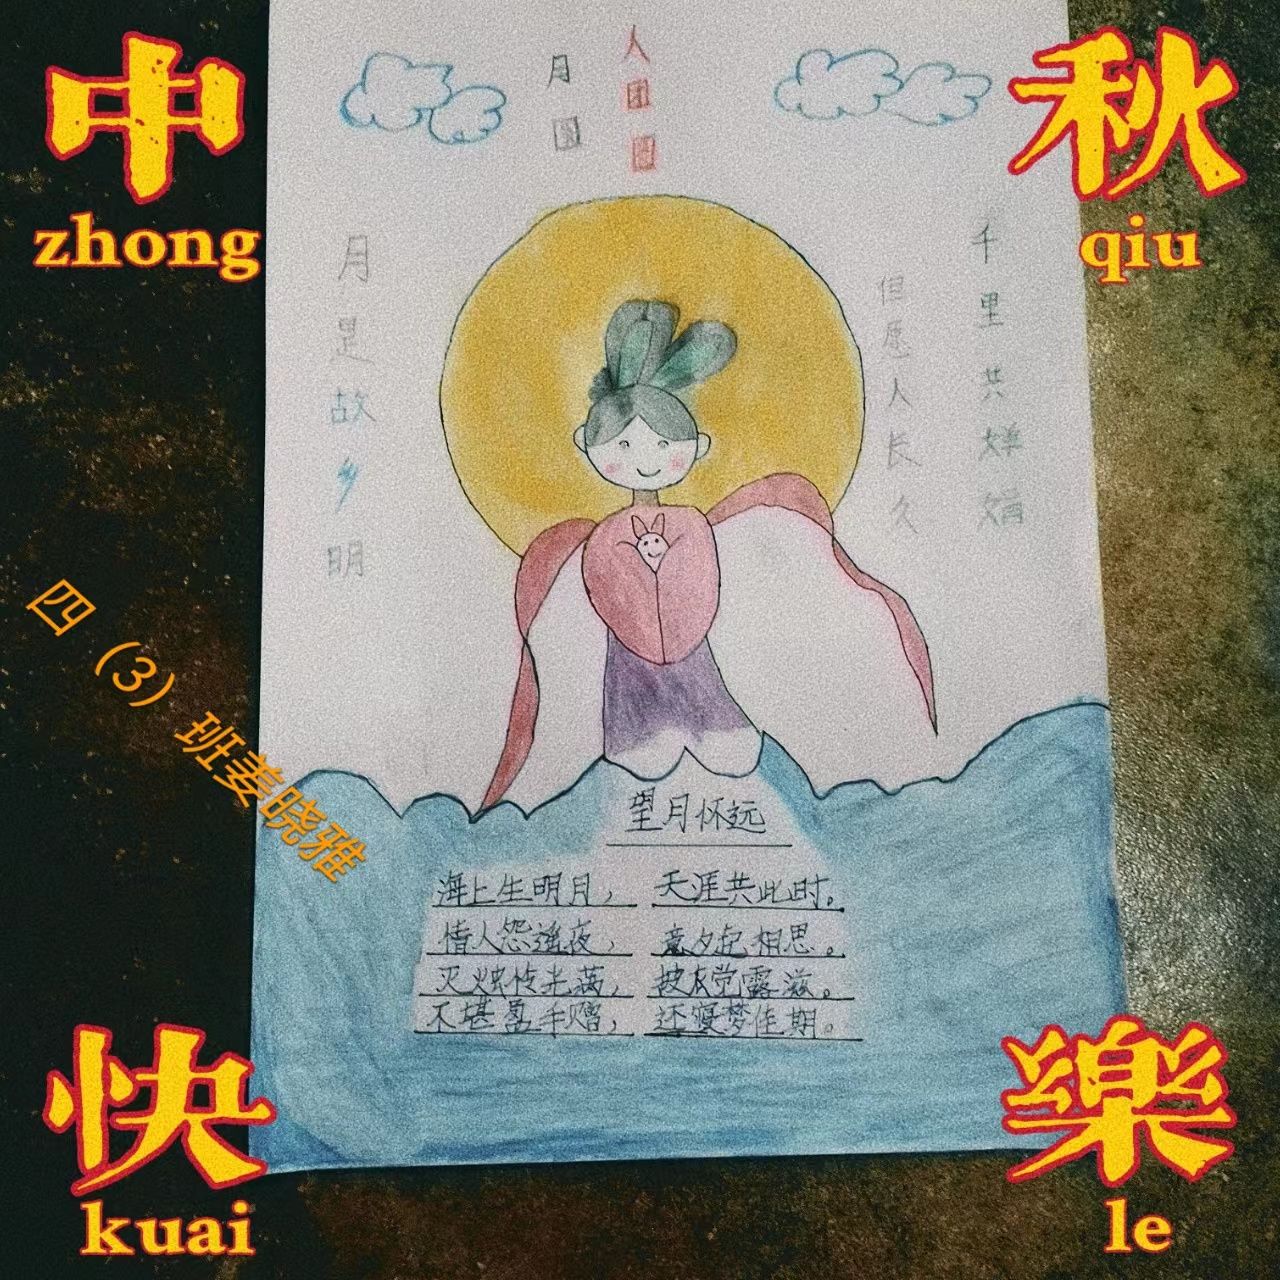 中 秋
zhong qiu
月圆
人团圆
月是故乡明
千里共婵娟
但愿人长久
四（3）班姜晓雅
望月怀远
海上生明月， 天涯共此时。
情人怨遥夜， 竟夕起相思。
灭烛怜光满， 披衣觉露滋。
不堪盈手赠， 还寝梦佳期。
快 樂
kuai le